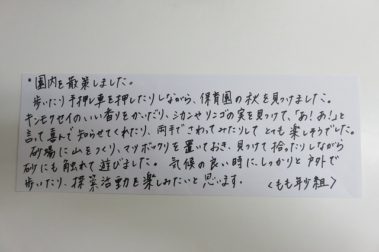 *園内を散策しました。
歩いたり手押し車を押したりしながら、保育園の秋を見つけました。
キンモクセイのいい香りをかいだり、ミカンやリンゴの実を見つけて、「あ！あ！」と
言って喜んで知らせてくれたり、両手でさわってみたりしてとても楽しそうでした。
砂場に山をつくり、マツボックリを置いておき、見つけて拾ったりしながら
砂にも触れて遊びました。気候の良い時に、しっかりと戸外で
歩いたり、探索活動を楽しみたいと思います。〈もも年少組〉